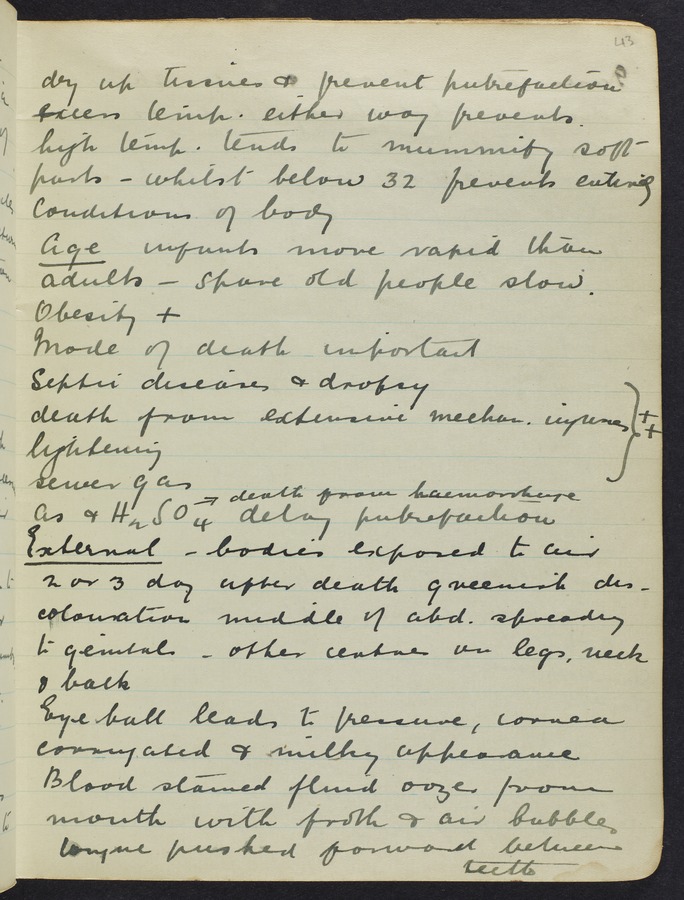 43
dry up tissues & prevent putrefaction
excess temp. either way prevents.
high temp. tends to mummify soft
parts - whilst below 32 prevents entirely
Conditions of body
Age infants more rapid than
adults - spare old people slow.
Obesity +
Mode of death important
Septic diseases & dropsy
death from extensive mechan. injuries } + +
lightening
sewer gas
→ death from haemorrhage
as & H2SO4 delay putrefaction
External - bodies exposed to air
2 or 3 day after death greenish dis-
colouration middle of abd. spreading
to genitals - other centres on legs, neck
& back
Eye ball leads to pressure, cornea
corrugated & milky appearance
Blood stained fluid oozes from
mouth with froth & air bubbles
tongue pushed forward between
teeth